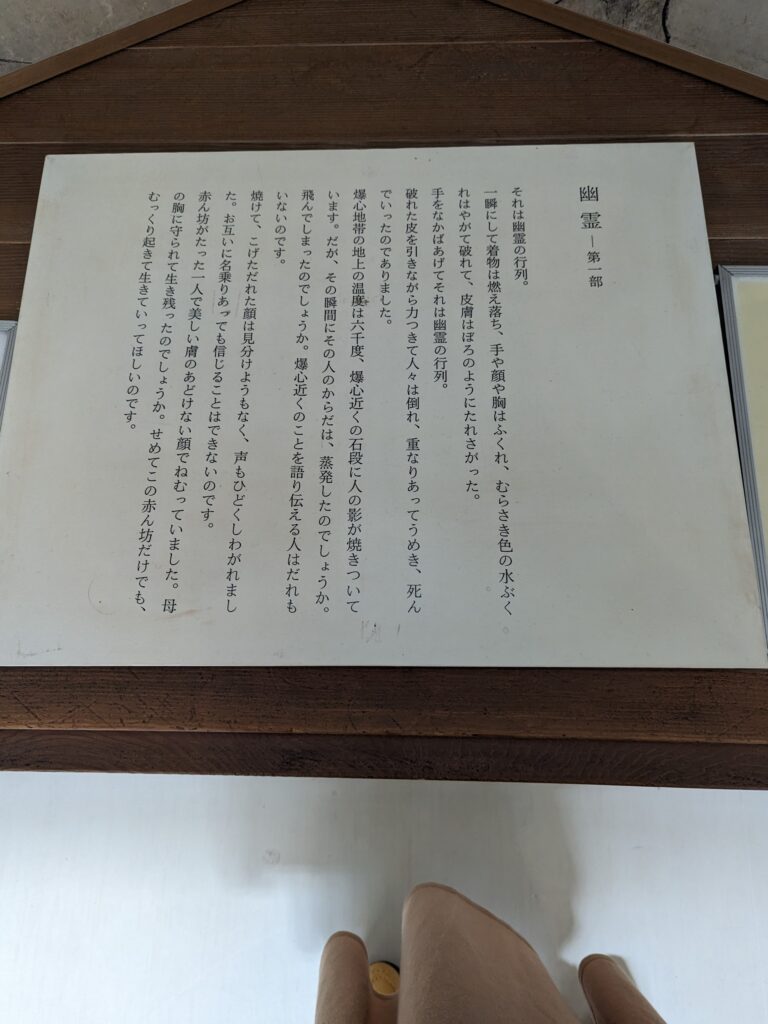 幽霊 ― 第一部
それは幽霊の行列。
一瞬にして着物は燃え落ち、手や顔や胸はふくれ、むらさき色の水ぶく
れはやがて破れて、皮膚はぼろのようにたれさがった。
手をなかばあげてそれは幽霊の行列。
破れた皮を引きながら力つきて人々は倒れ、重なりあってうめき、死ん
でいったのでありました。
爆心地帯の地上の温度は六千度、爆心近くの石段に人の影が焼きついて
います。だが、その瞬間にその人のからだは、蒸発したのでしょうか。
飛んでしまったのでしょうか。爆心近くのことを語り伝える人はだれも
いないのです。
焼けて、こげただれた顔は見分けようもなく、声もひどくしわがれまし
た。お互いに名乗りあっても信じることはできないのです。
赤ん坊がたった一人で美しい膚のあどけない顔でねむっていました。母
の胸に守られて生き残ったのでしょうか。せめてこの赤ん坊だけでも、
むっくり起きて生きていってほしいのです。